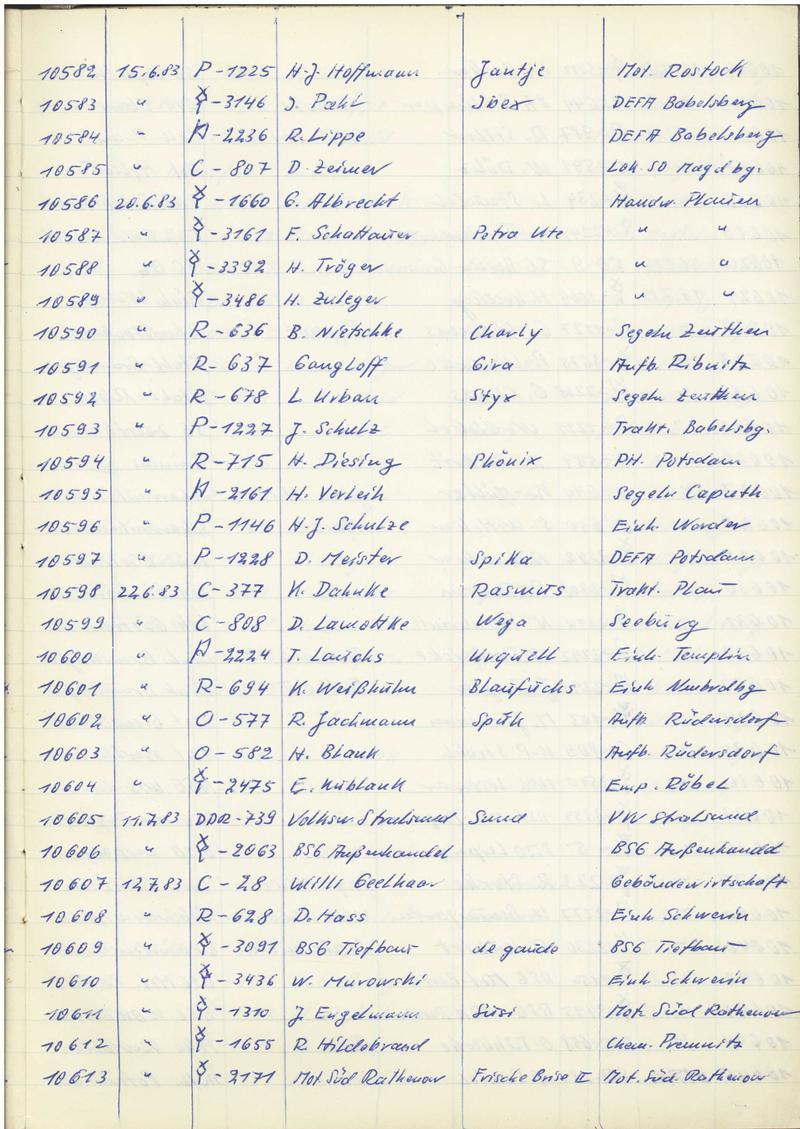 10582 15.6.83 P-1225 H-J. Hoffmann Jantje Mot. Rostock
10583 " -3146 J. Pahl Ibex DEFA Babelsberg
10584 " -2236 R. Lippe DEFA Babelsberg
10585 " C-807 D. Zeimer Lok. SO Magdbg.
10586 20.6.83 -1660 G. Albrecht Handw. Plauen
10587 " -3161 F. Schattauer Petra Ute " "
10588 " -3392 H. Tröger " "
10589 " -3486 H. Zuleger " "
10590 " R-636 B. Nietschke Charly Segeln Zeuthen
10591 " R-637 Gangloff Gira Aufb. Ribnitz
10592 " R-678 L. Urban Styx Segeln Zeuthen
10593 " P-1227 J. Schulz Trakt. Babelsbg.
10594 " R-715 H. Diesing Phönix PH. Potsdam
10595 " -2161 H. Verleih Segeln Caputh
10596 " P-1146 H-J. Schulze Einh. Werder
10597 " P-1228 D. Meister Spika DEFA Potsdam
10598 22.6.83 C-377 K. Dahnke Rasmus Trakt. Plau
10599 " C-808 D. Lamottke Wega Seeburg
10600 " -2224 T. Lauchs Urquell Einh. Templin
10601 " R-694 K. Weißhuhn Blaufuchs Einh Nmbrdbg
10602 " O-577 R. Jachmann Spuk Aufb. Rüdersdorf
10603 " O-582 H. Blank Aufb. Rüdersdorf
10604 " -2475 E. Kublank Emp. Röbel
10605 11.7.83 DDR-739 Volksw. Stralsund Sund VW Stralsund
10606 " -2063 BSG Außenhandel BSG Außenhandel
10607 12.7.83 C-28 Willi Geelhaar Gebäudewirtschaft
10608 " R-628 D. Hass Einh Schwerin
10609 " -3091 BSG Tiefbau de gaude BSG Tiefbau
10610 " -3436 W. Murowski Einh Schwerin
10611 " -1310 J. Engelmann Susi Mot. Süd Rathenow
10612 " -1655 R. Hildebrand Chem. Premnitz
10613 " -2171 Mot. Süd Rathenow Frische Brise II Mot. Süd. Rathenow